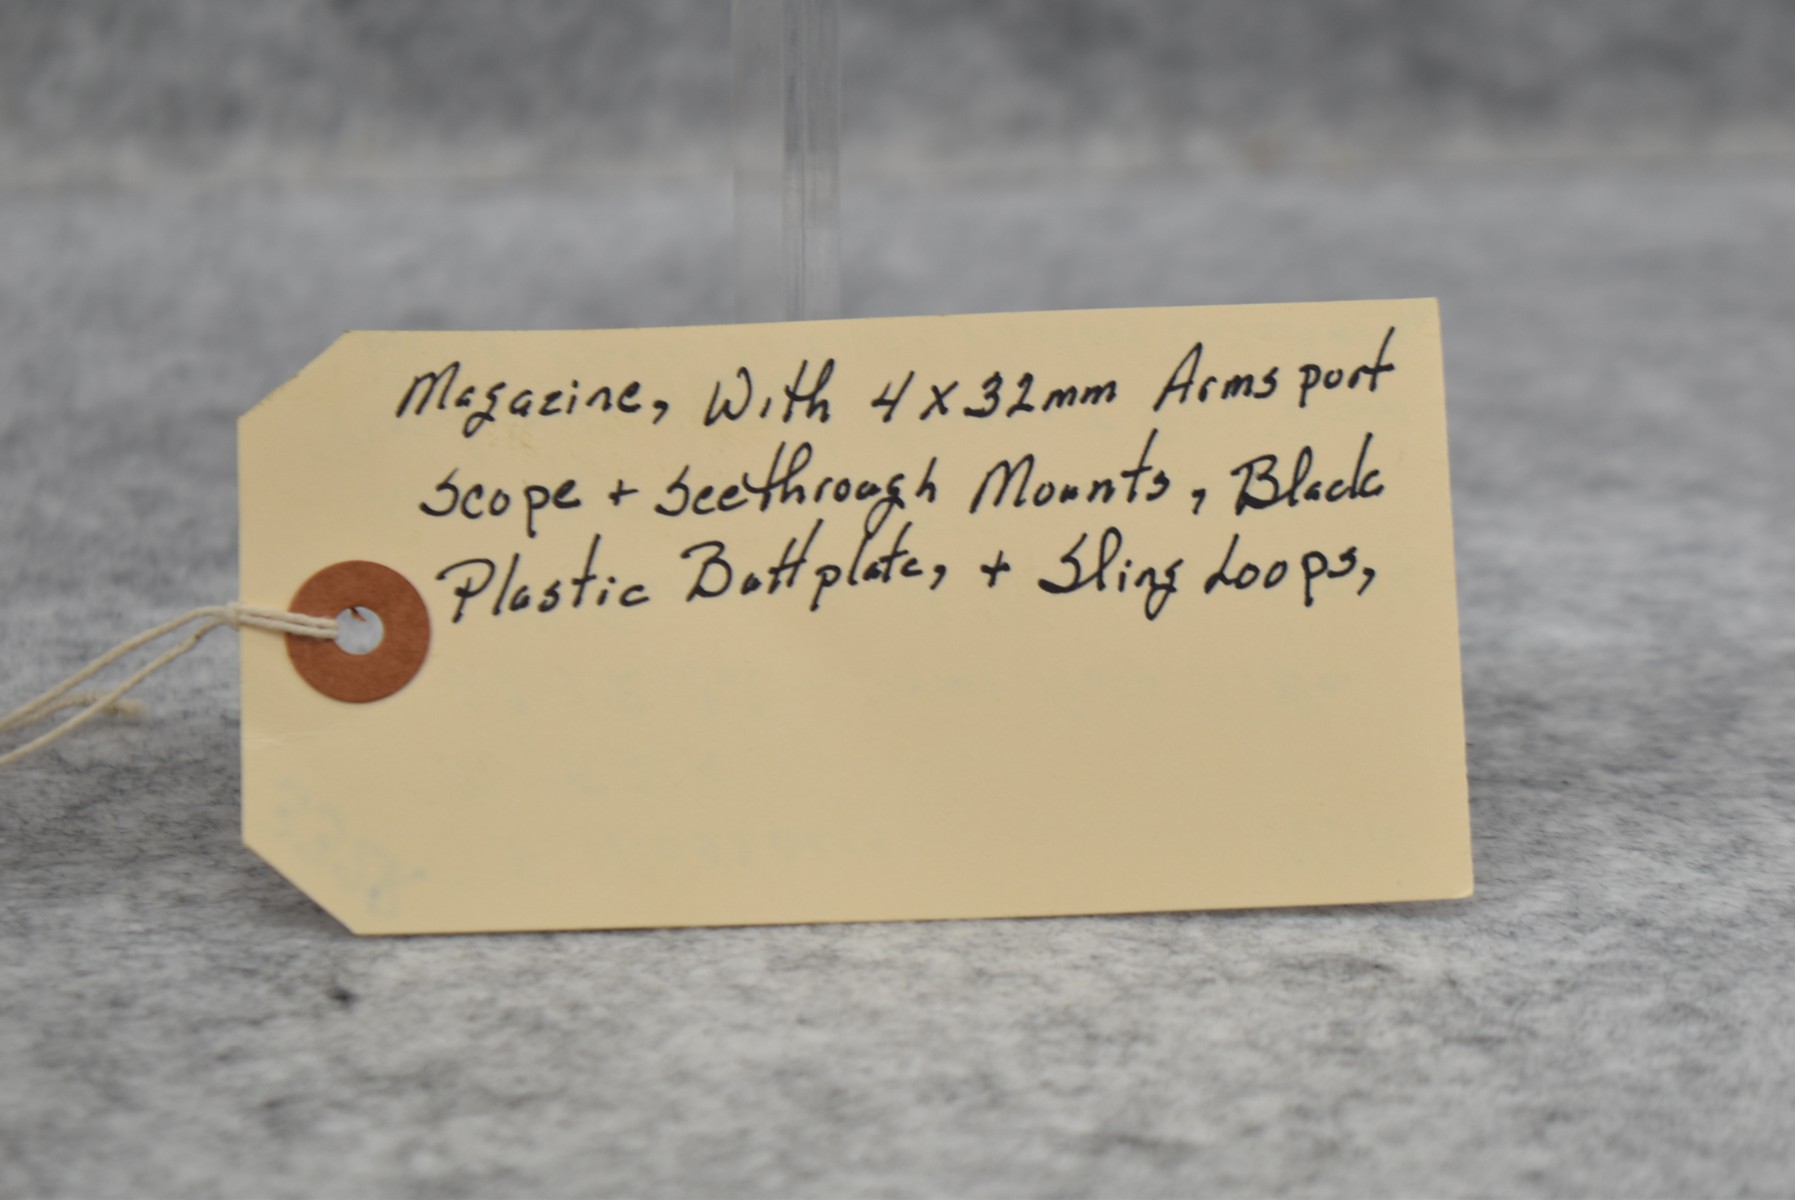 Magazine, With 4x32mm Armsport
Scope + Seethrough Mounts, Black
Plastic Buttplate, + Sling Loops,